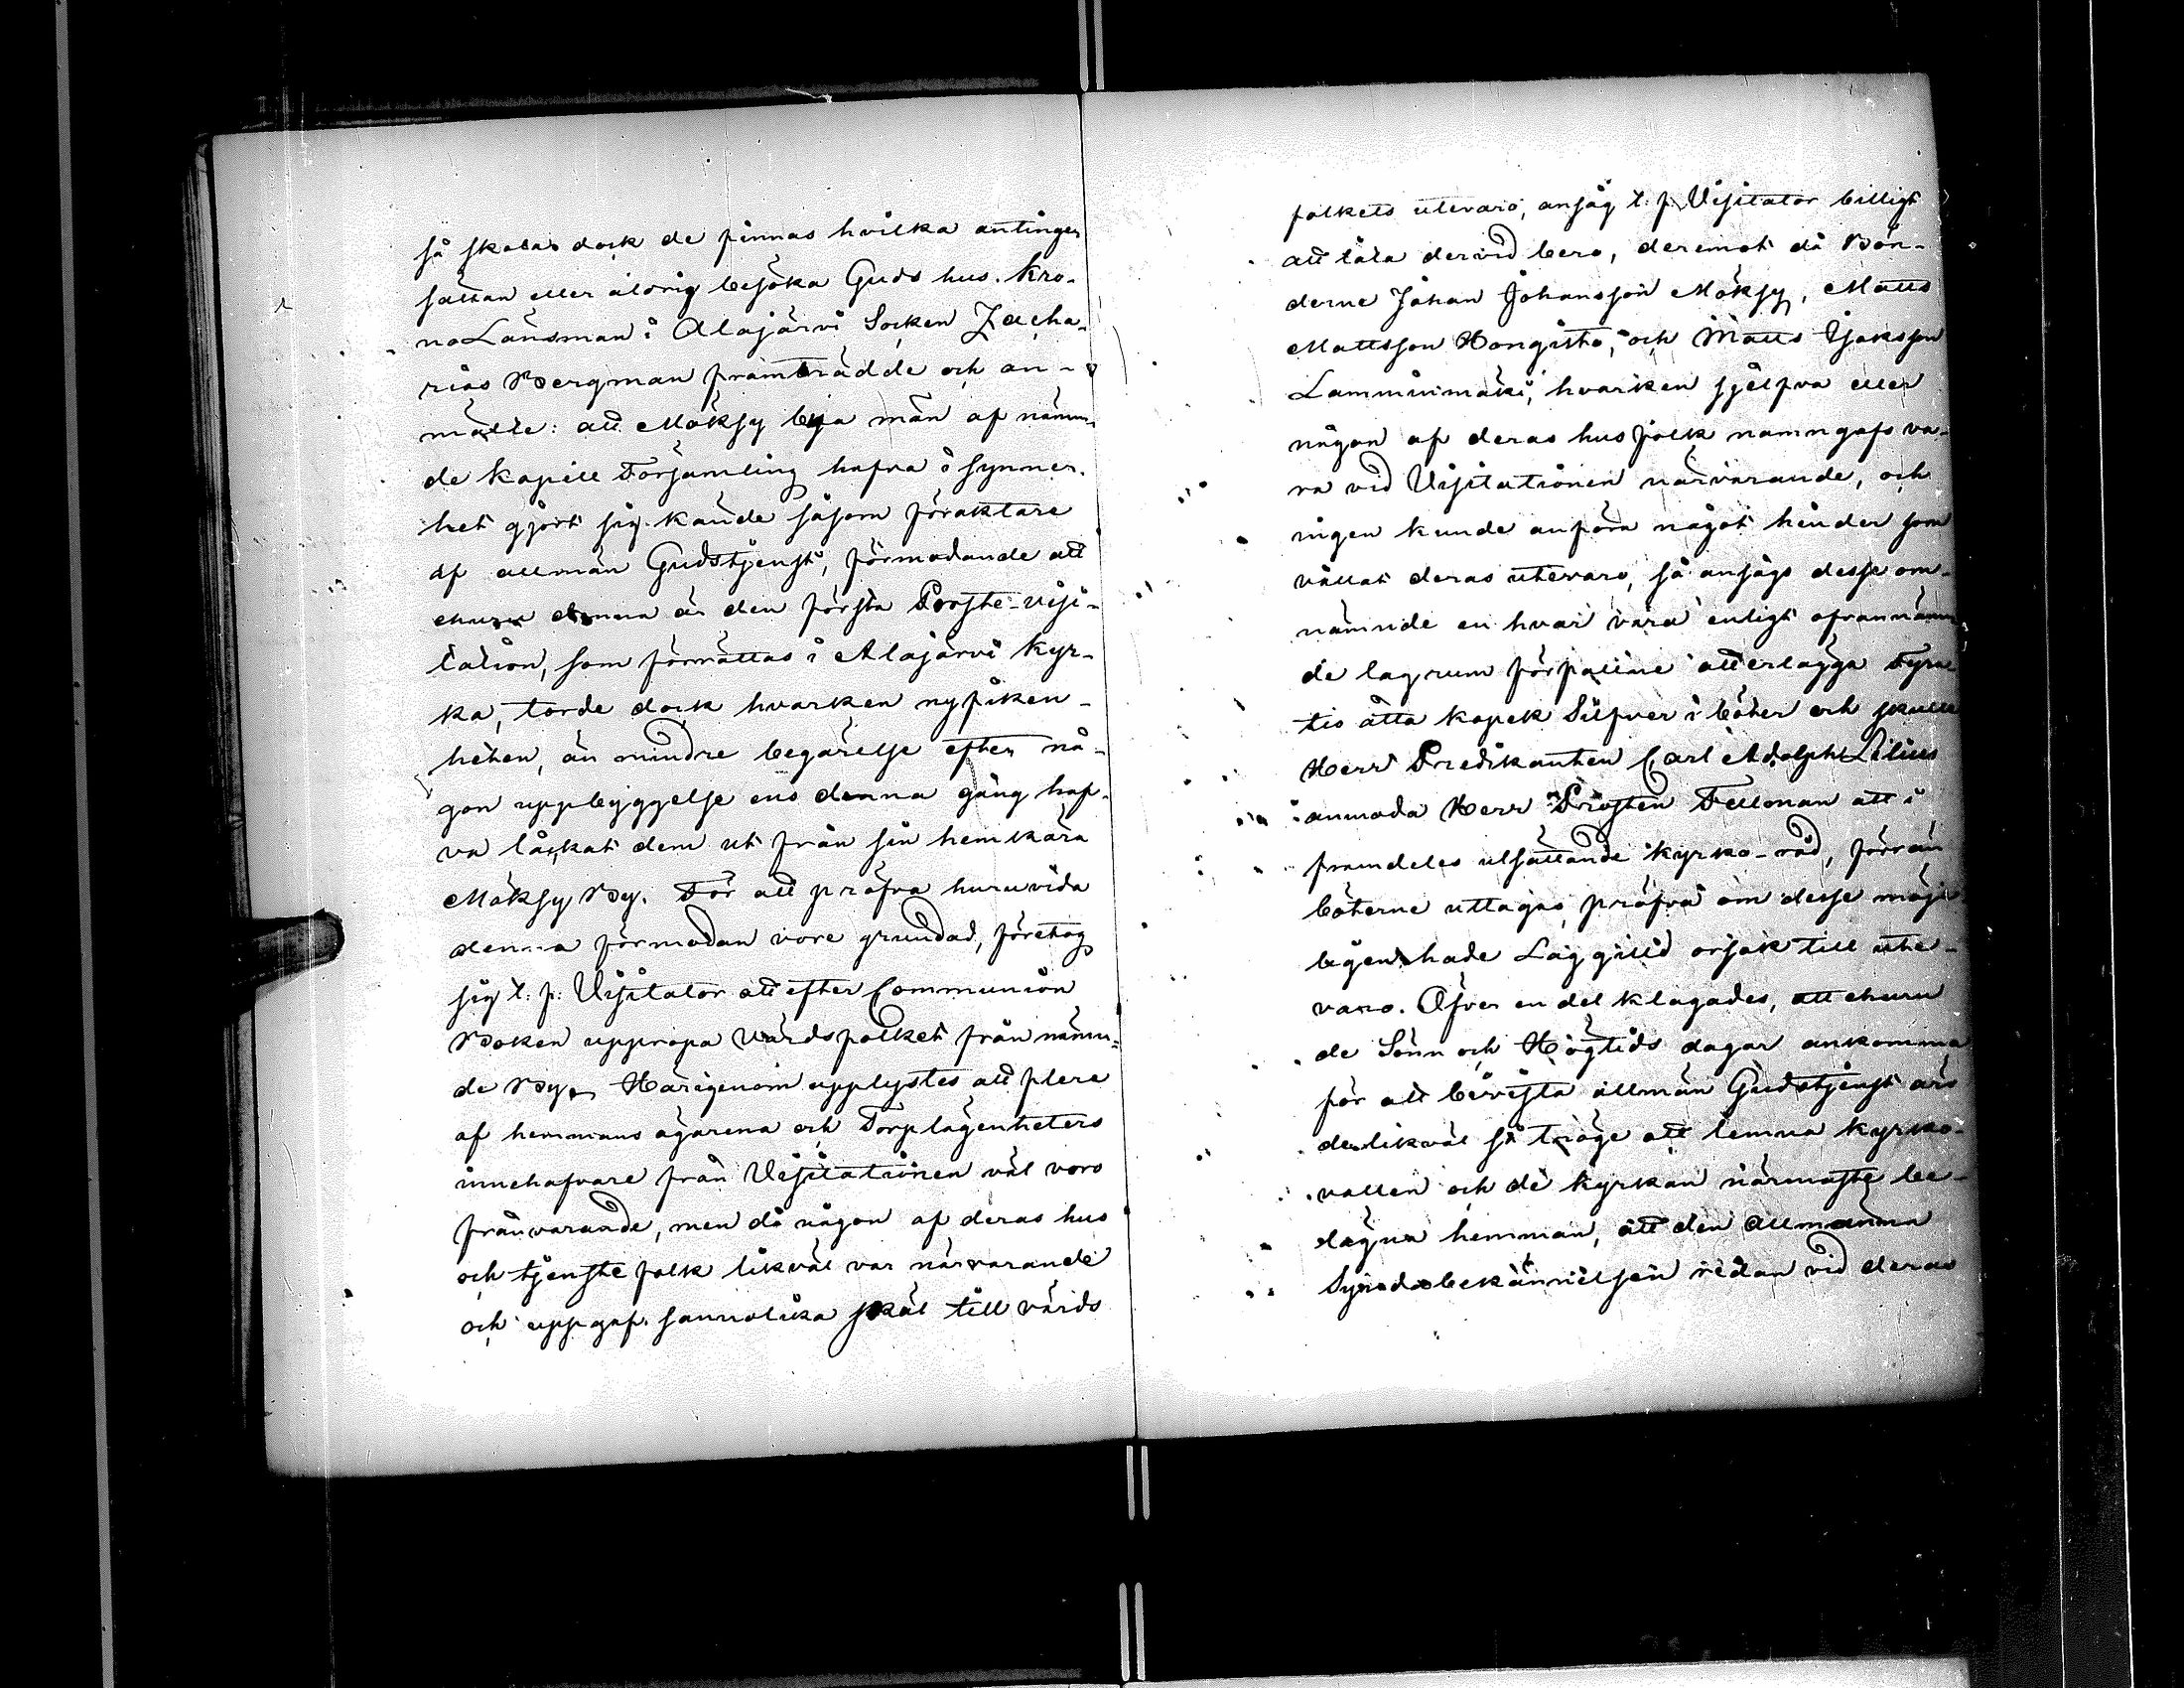 så skola dock de finnas hvilka antingen
sällan eller aldrig besöka Guds hus. Kro-
no Länsman i Alajärvi Socken Zacha-
rias Bergman framträdde och an-
mälte: att Möksy bya män af nämn-
de Kapell Församling hafva i synner-
het gjort sig kände såsom föraktare
af allmän Gudstjenst, förmodande att
ehuru denna är den första Proste-visi-
tation, som förrättas i Alajärvi Kyr-
ka, torde dock hvarken nyfiken-
heten, än mindre begärelse efter nå-
gon uppbyggelse ens denna gång haf-
va låckat dem ut från sin hemkära
Möksy By. För att pröfva huruvida
denna förmodan vore grundad, företog
sig t: f: Visitator att efter Communion
Boken uppropa Värdsfolket från nämn-
de By. Härigenom upplystes att flere
af hemmans ägarena och Torplägenheters
innehafvare från Visitationen väl voro
frånvarande, men då någon af deras hus
och tjenstefolk likväl var närvarande
och uppgaf sannolika skäl till värds
folkets utevaro, ansåg t: f: Visitator billigt
att låta dervid bero, deremot då Bön-
derne Johan Johansson Möksy, Matts
Mattsson Hongisto, och Matts Isaksson
Lamminmäki, hvarken sjelfva eller
någon af deras husfolk namngafs va-
ra vid Visitationen närvarande, och
ingen kunde anföra något hinder som
vållat deras utevaro, så ansågs desse om-
nämnde en hvar vara enligt ofvannämn-
de lagrum förfallne att erlägga Fyra-
tio åtta kopek Silfver i böter och skulle
Herr Predikanten Carl Adolph Lilius
anmoda Herr Prosten Fellman att i
framdeles utsättande kyrko-råd, förrän
böterne uttagas, pröfva om desse möje-
ligen hade Laggilld orsak till ute-
varo. Öfver en del klagades, att ehuru
de Sönn och Högtids dagar ankomma
för att bevista allmän Gudstjenst äro
de likväl så tröge att lemna kyrko-
vallen och de kyrkan närmaste be-
lägna hemman, att den allmänna
Syndabekännelsen redan vid deras